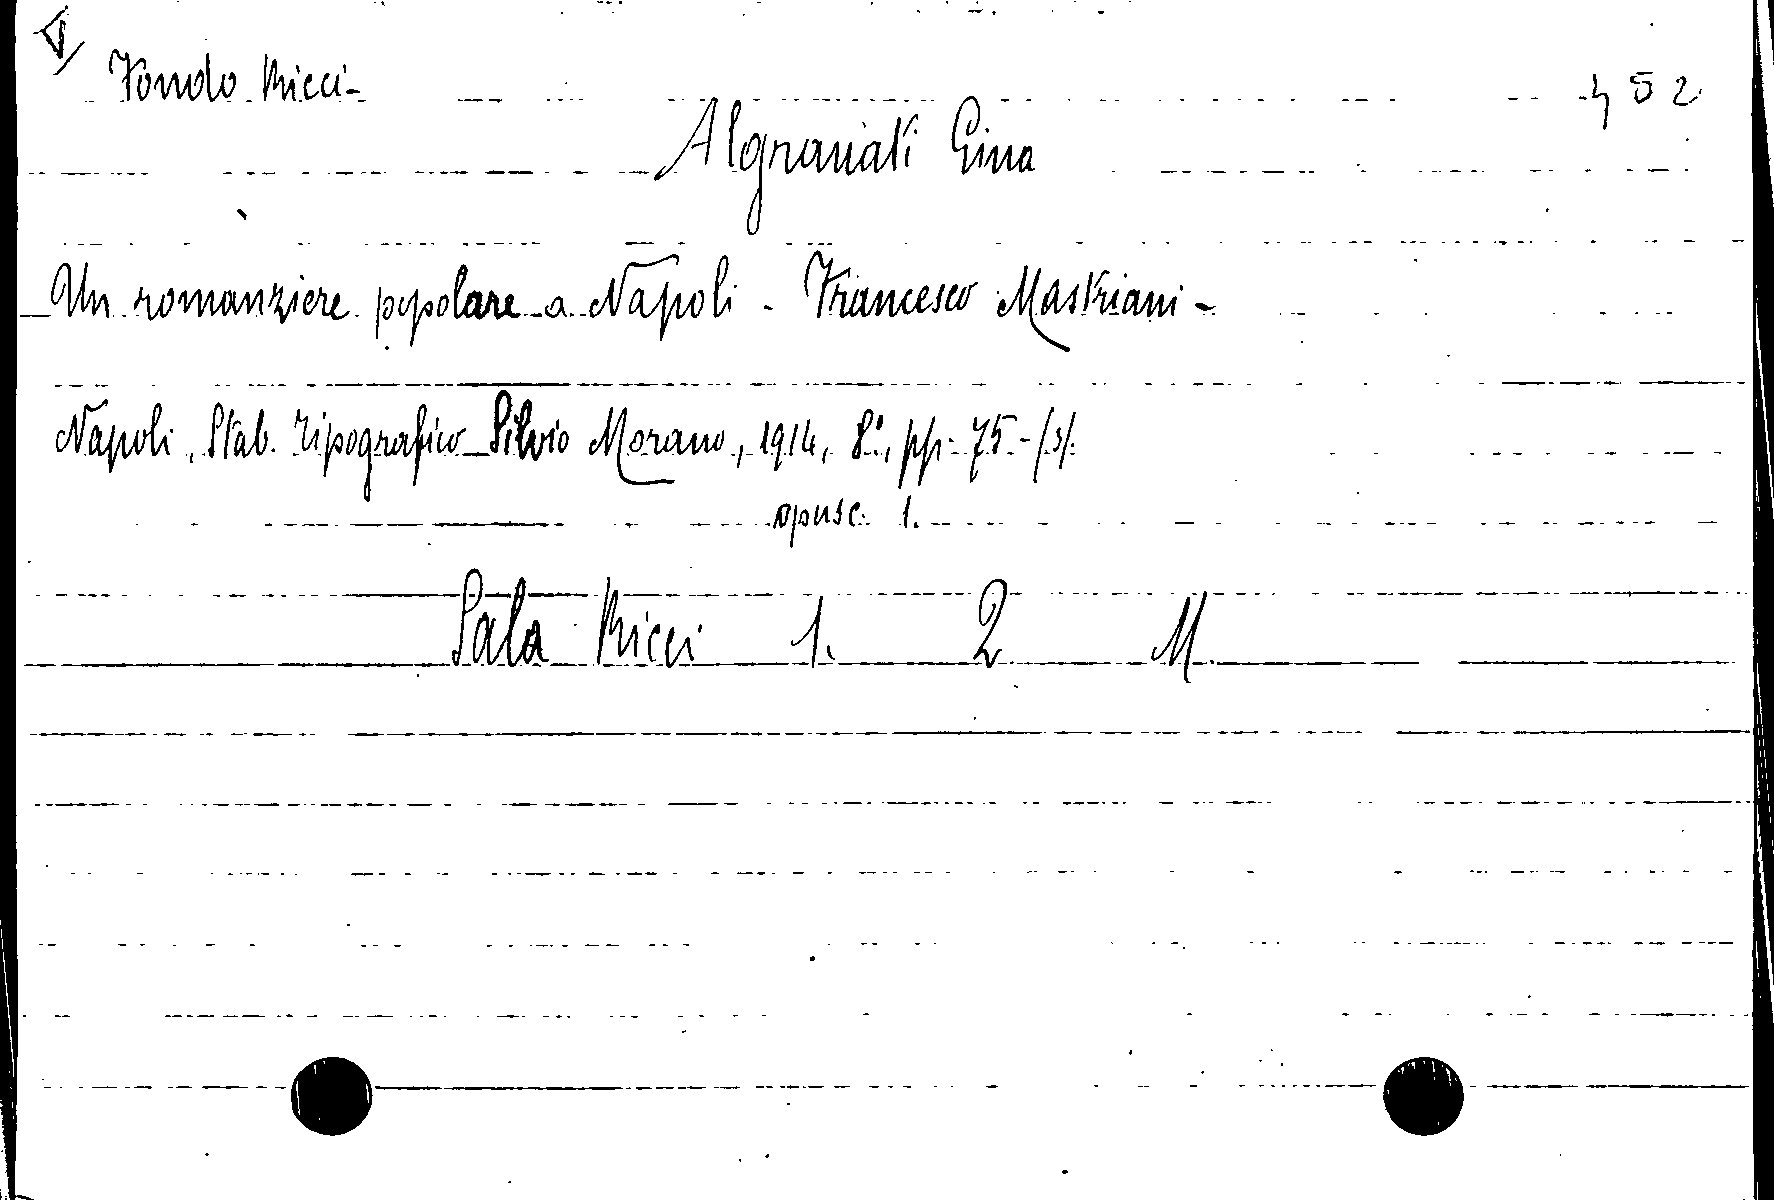 Fondo Ricci-
452
Algranati Gina
Un romanziere popolare a Napoli - Francesco Mastriani -
Napoli, Stab. Tipografico Silvio Morano, 1914, 8°, pp. 75-(3).
opusc. 1.
Sala Ricci 1. 2 M.